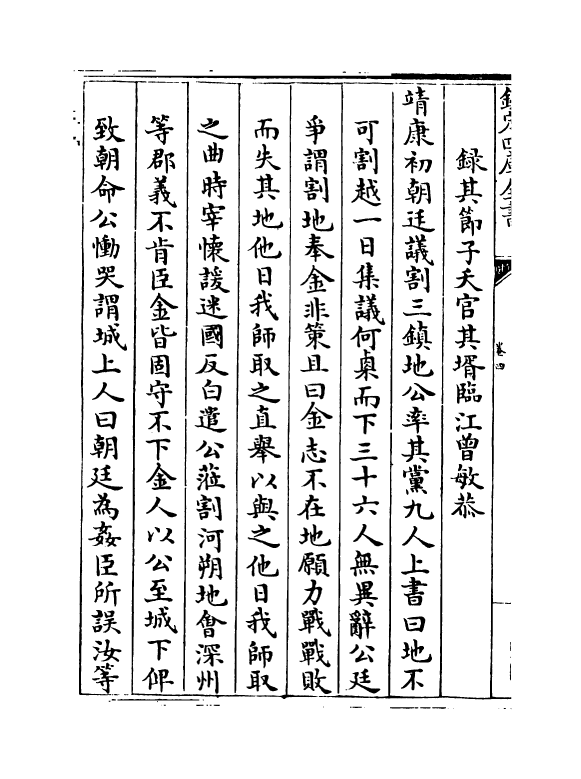 欽定四庫全書
卷四
録其節子天官其壻臨江曾敏㳟
靖康初朝廷議割三鎮地公率其黨九人上書曰地不
可割越一日集議何㮚而下三十六人無異辭公廷
爭謂割地奉金非策且曰金志不在地願力戰戰敗
而失其地他日我師取之直舉以與之他日我師取
之曲時宰懐諼迷國反白遣公蒞割河朔地㑹深州
等郡義不肯臣金皆固守不下金人以公至城下俾
致朝命公慟哭謂城上人曰朝廷為姦臣所誤汝等